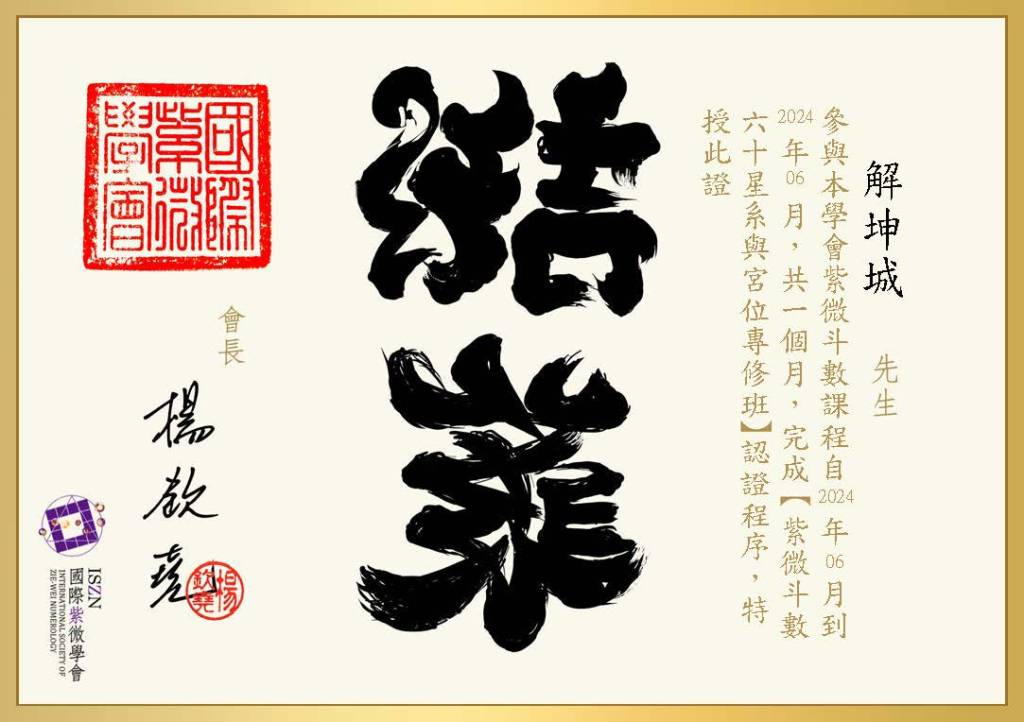 解坤城 先生
參與本學會紫微斗數課程自2024年06月到
2024年06月，共一個月，完成【紫微斗數
六十星系與宮位專修班】認證程序，特
授此證
結業
國際
紫微
學會
會長
楊欽堯
楊
欽堯
ISZN
國際紫微學會
INTERNATIONAL SOCIETY OF
ZIE-WEI NUMEROLOGY